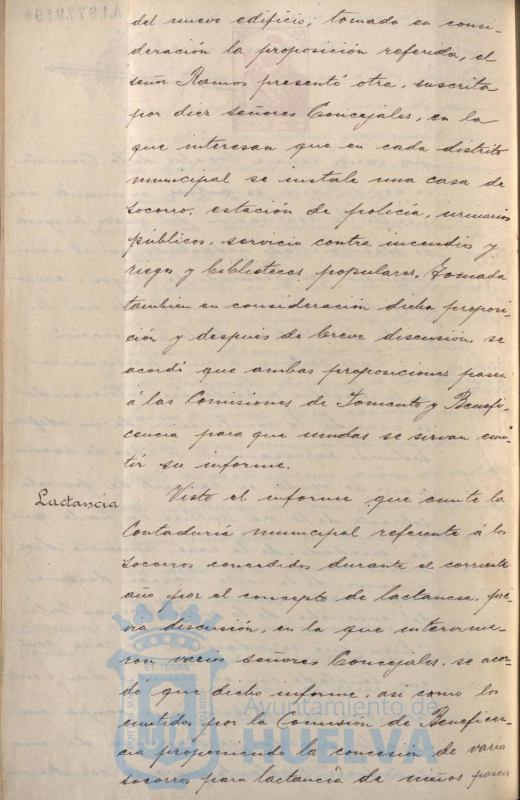 del nuevo edificio; tomada en consi-
deración la proposición referida, el
señor Ramos presentó otra, suscrita
por diez señores Concejales, en la
que interesan que en cada distrito
municipal se instale una casa de
socorro, estación de policía, urinarios
públicos, servicio contra incendios y
riegos y bibliotecas populares. Tomada
tambien en consideración dicha proposi-
ción y después de breve discusión, se
acordó que ambas proposiciones pasen
á las Comisiones de Fomento y Benefi-
cencia para que unidas se sirvan emi-
tir su informe.
Lactancia
Visto el informe que emite la
Contaduría municipal referente á los
socorros concedidos durante el corriente
año por el concepto de lactancia, pre-
via discusión, en la que intervinie-
ron varios señores Concejales, se acor-
dó que dicho informe, así como los
emitidos por la Comisión de Beneficen-
cia proponiendo la concesión de varios
socorros para lactancia de niños pasen
Ayuntamiento de
HUELVA